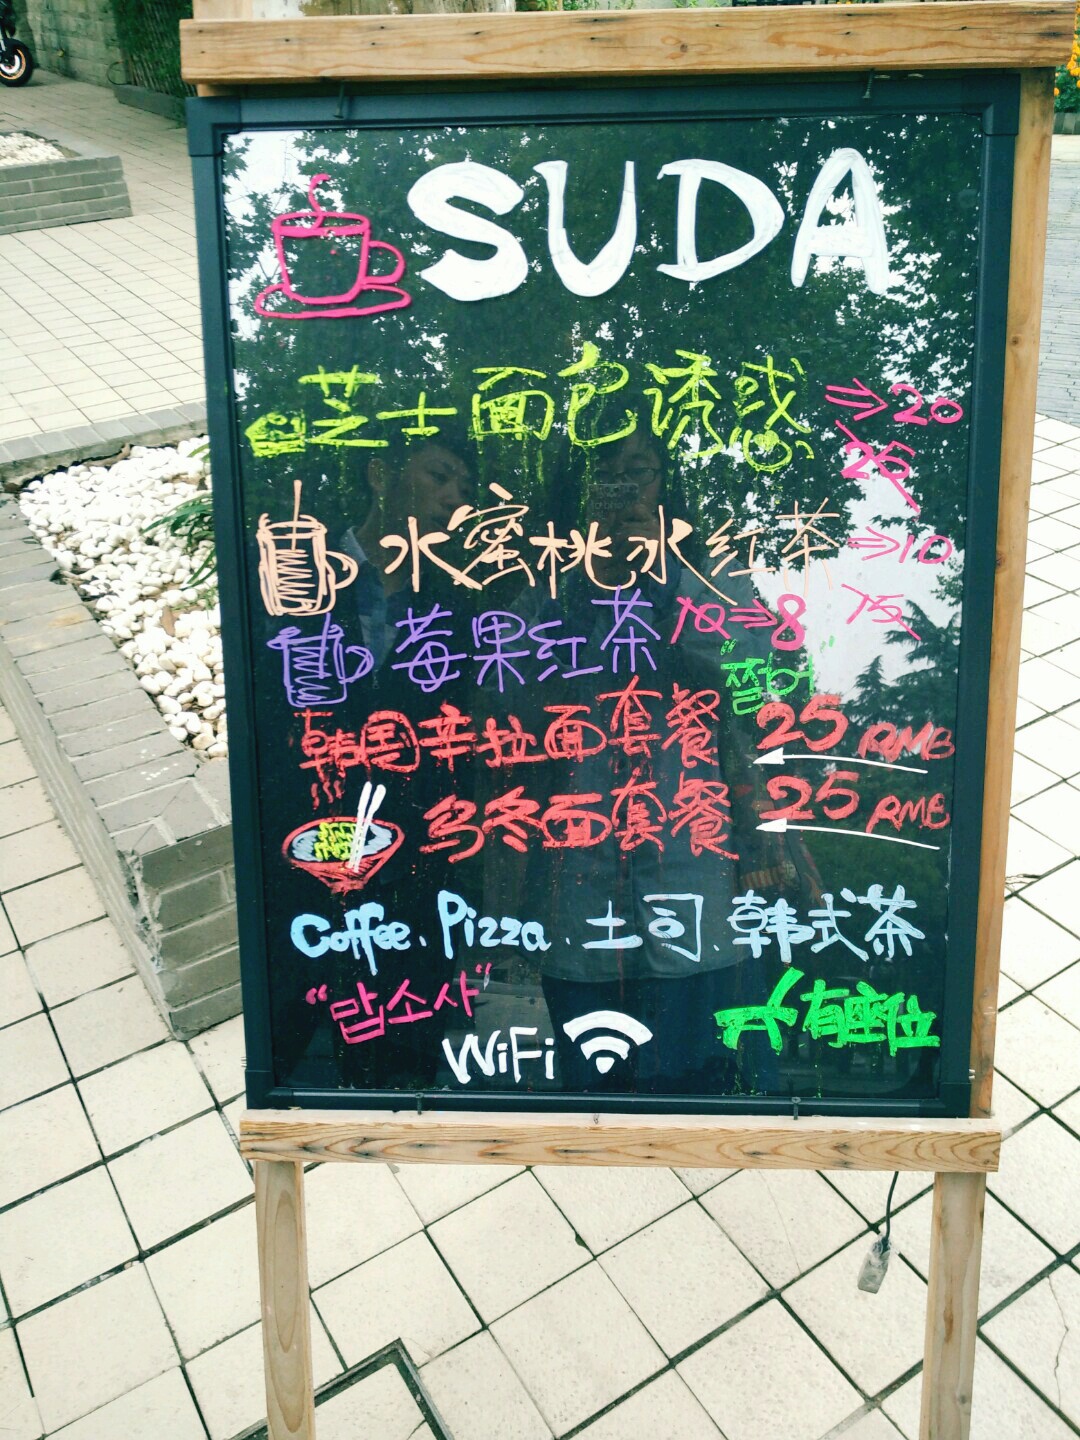 SUDA
芝士面包诱惑 ⇒ 20
25
水蜜桃冰红茶 ⇒ 10
15
莓果红茶 10 ⇒ 8
韩国辛拉面套餐 25 RMB
乌冬面套餐 25 RMB
Coffee. Pizza. 土司. 韩式茶
"맙소사"
有座位
WiFi